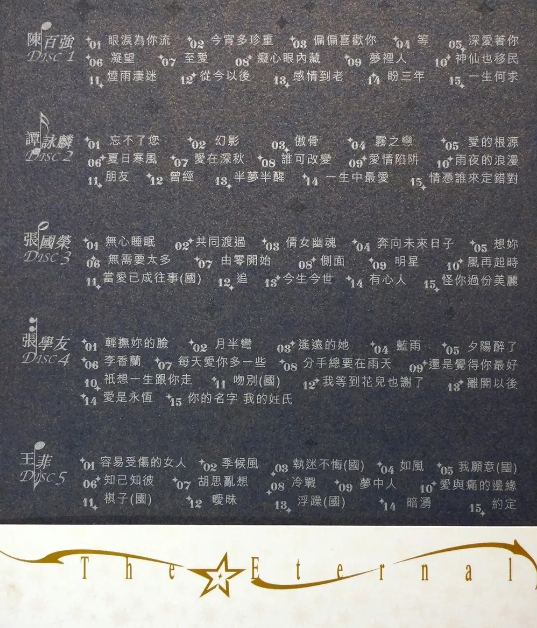 陳百強 01 眼淚為你流 02 今宵多珍重 03 偏偏喜歡你 04 等 05 深愛著你
Disc 1 06 凝望 07 至愛 08 癡心眼內藏 09 夢裡人 10 神仙也移民
11 煙雨凄迷 12 從今以後 13 感情到老 14 盼三年 15 一生何求
譚詠麟 01 忘不了您 02 幻影 03 傲骨 04 霧之戀 05 愛的根源
Disc 2 06 夏日寒風 07 愛在深秋 08 誰可改變 09 愛情陷阱 10 雨夜的浪漫
11 朋友 12 曾經 13 半夢半醒 14 一生中最愛 15 情憑誰來定錯對
張國榮 01 無心睡眠 02 共同渡過 03 倩女幽魂 04 奔向未來日子 05 想妳
Disc 3 06 無需要太多 07 由零開始 08 側面 09 明星 10 風再起時
11 當愛已成往事(國) 12 追 13 今生今世 14 有心人 15 怪你過份美麗
張學友 01 輕撫妳的臉 02 月半彎 03 遙遠的她 04 藍雨 05 夕陽醉了
Disc 4 06 李香蘭 07 每天愛你多一些 08 分手總要在雨天 09 還是覺得你最好
10 祇想一生跟你走 11 吻別(國) 12 我等到花兒也謝了 13 離開以後
14 愛是永恆 15 你的名字 我的姓氏
王菲 01 容易受傷的女人 02 季候風 03 執迷不悔(國) 04 如風 05 我願意(國)
Disc 5 06 知己知彼 07 胡思亂想 08 冷戰 09 夢中人 10 愛與痛的邊緣
11 棋子(國) 12 曖昧 13 浮躁(國) 14 暗湧 15 約定
The Eternal